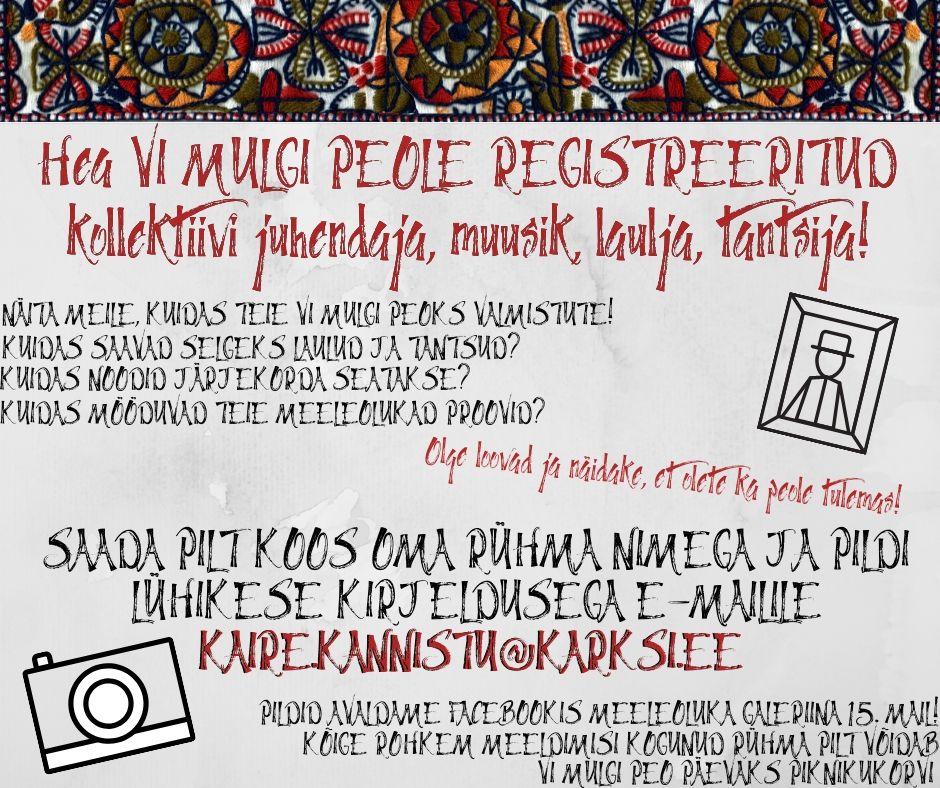 Hea VI MULGI PEOLE REGISTREERITUD
kollektiivi juhendaja, muusik, laulja, tantsija!
NÄITA MEILE, KUIDAS TEIE VI MULGI PEOKS VALMISTUTE!
KUIDAS SAAVAD SELGEKS LAULUD JA TANTSUD?
KUIDAS NOODID JÄRJEKORDA SEATAKSE?
KUIDAS MÖÖDUVAD TEIE MEELEOLUKAD PROOVID?
Olge loovad ja näidake, et olete ka peole tulemas!
SAADA PILT KOOS OMA RÜHMA NIMEGA JA PILDI
LÜHIKESE KIRJELDUSEGA E-MAILILE
KAIRE.KANNISTU@KARKSI.EE
PILDID AVALDAME FACEBOOKIS MEELEOLUKA GALERIINA 15. MAIL!
KÕIGE ROHKEM MEELDIMISI KOGUNUD RÜHMA PILT VÕIDAB
VI MULGI PEO PÄEVAKS PIKNIKUKORVI